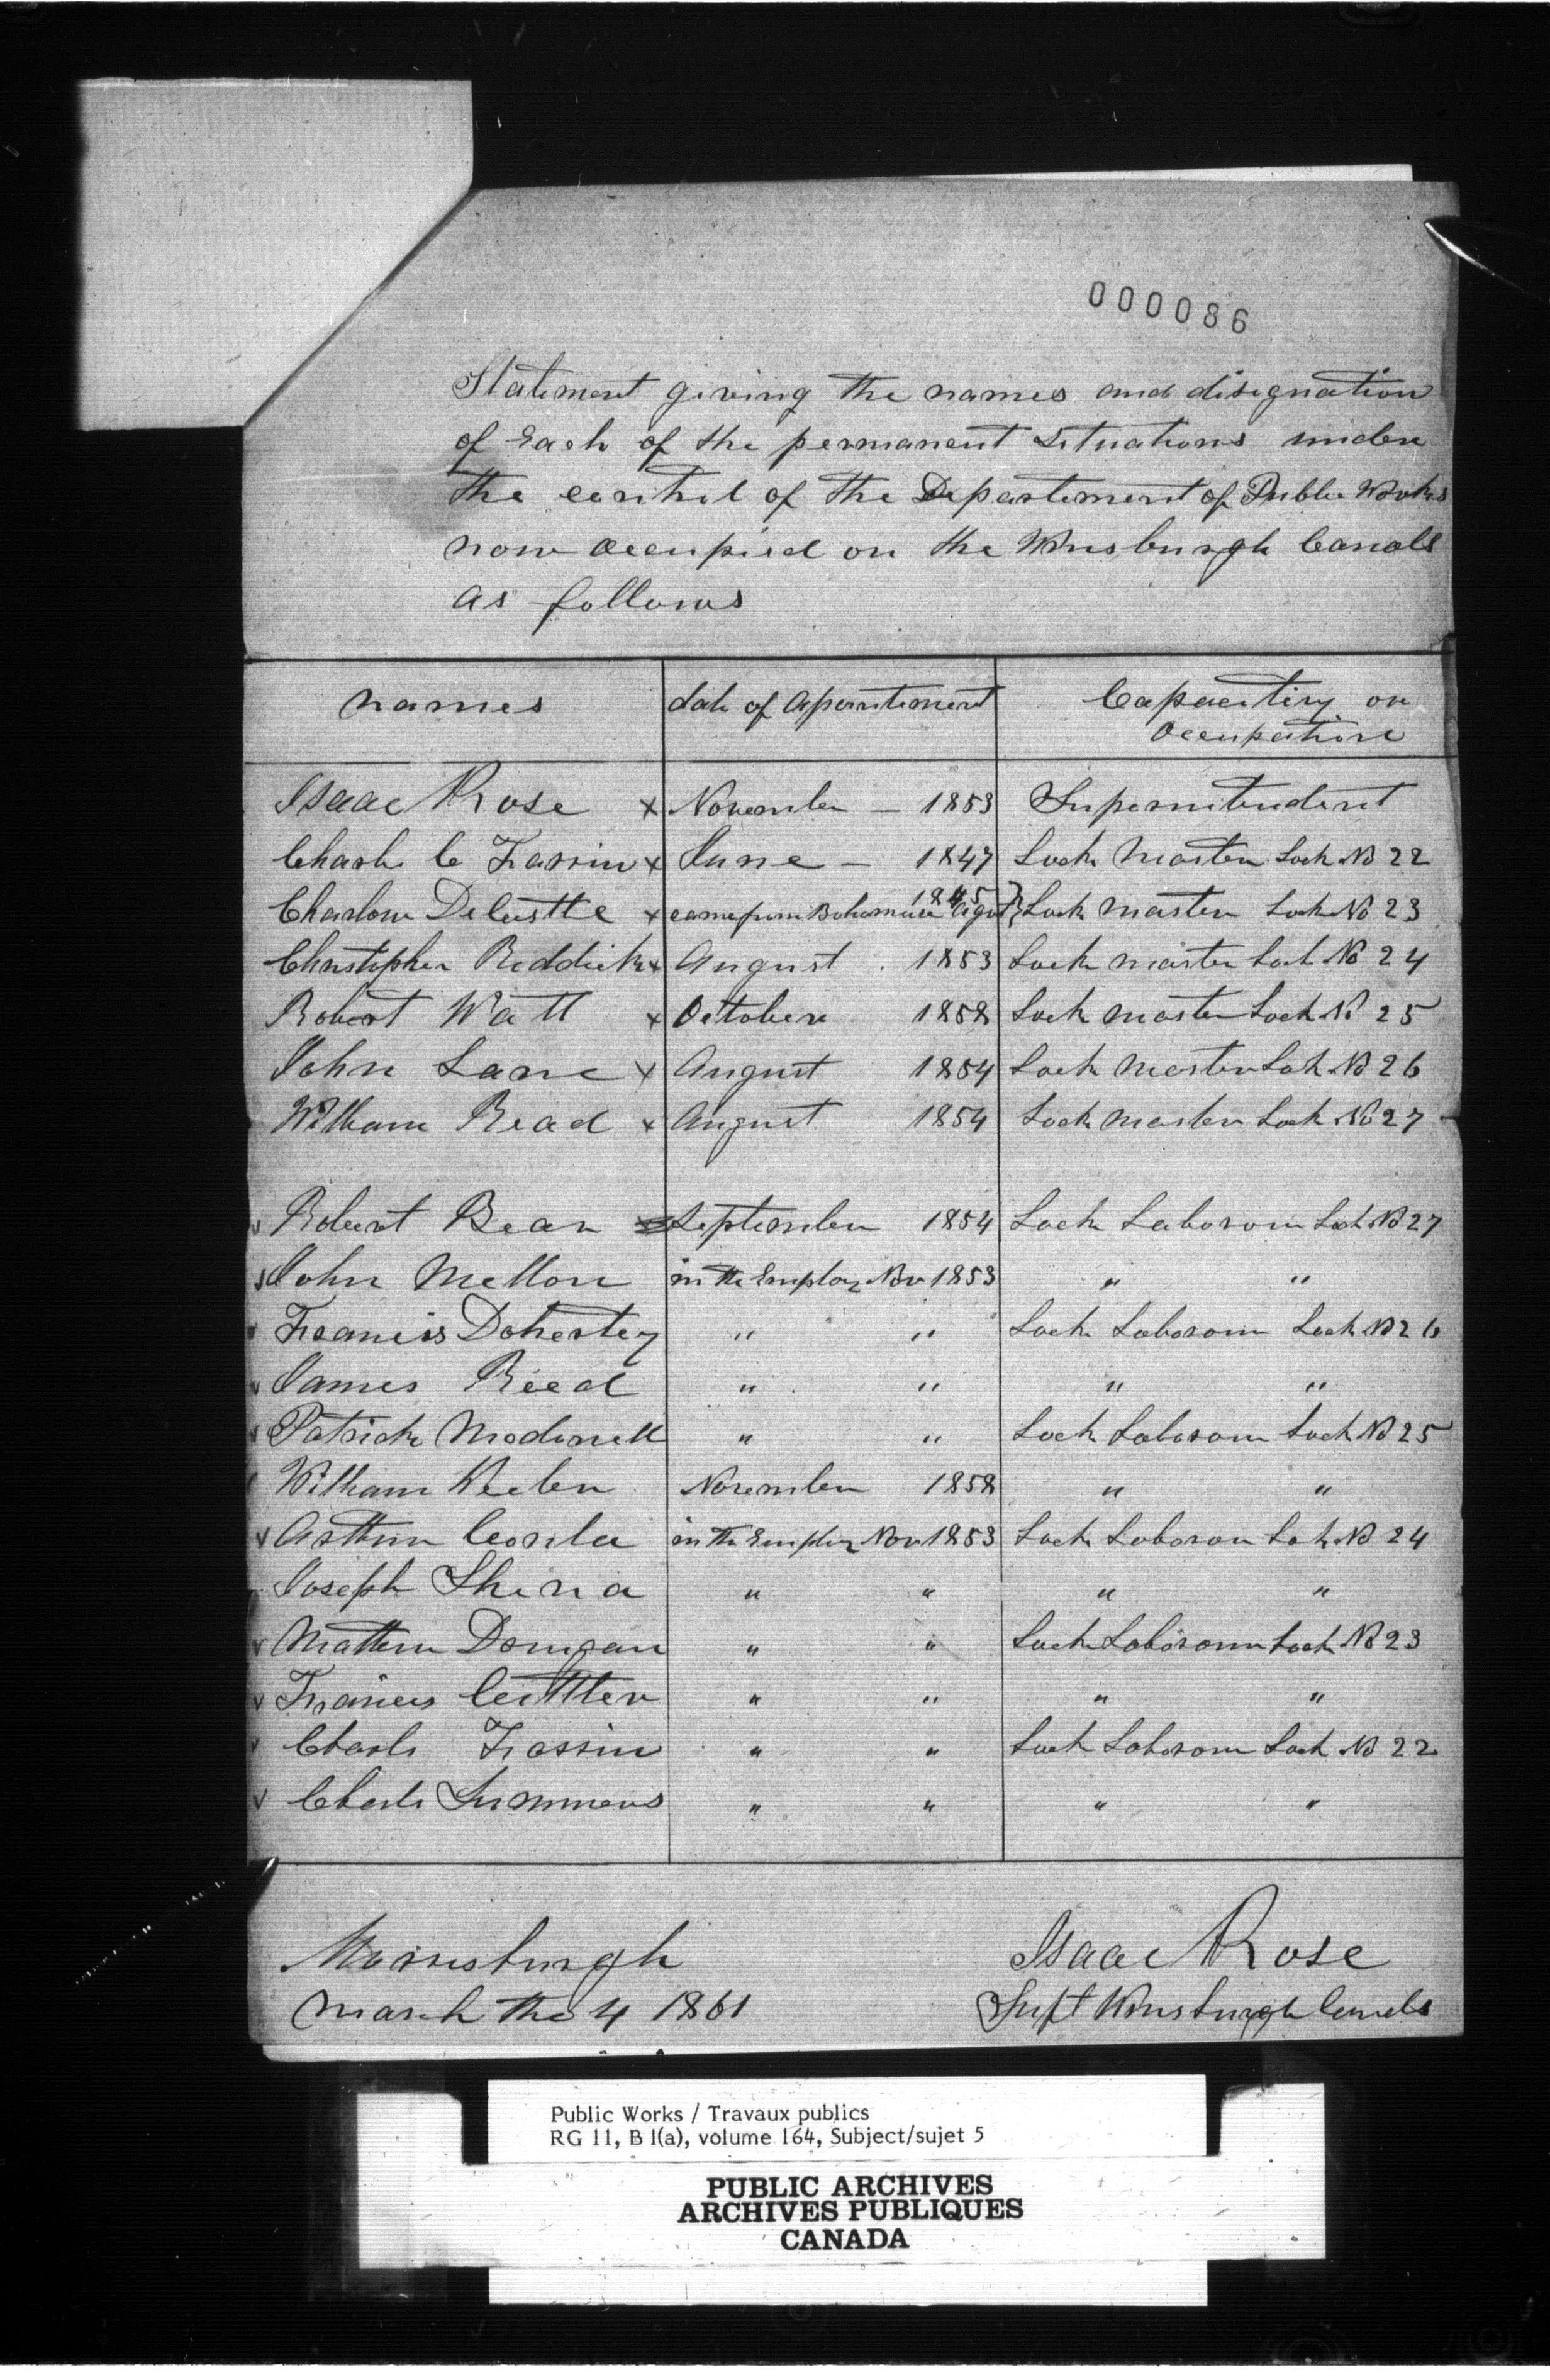 000086
Statement giving the names and disignation
of Each of the permanent Situations under
the control of the Departement of Public Works
now occupied on the Wmsburgh Canals
as follows
names date of apointement Capacitiy or
Occupation
Isaac Rose x November — 1853 Supernitendent
Charls C Farrin x June — 1847 Lock Master Lock No 22
x came from 1845 Lock master Lock No 23
Christopher Reddick x August . 1853 Lock master Lock No 24
Robert Watt x October 1858 Lock master Lock No 25
John Lane x August 1854 Lock Master Lock No 26
William Read x August 1854 Lock master Lock No 27
v Robert Bean September 1854 Lock Laborour Lock No 27
v John Mellon in the Employ Nov 1853 " "
v Francis Dohertey " " Lock Laborour Lock No 26
v James Reed " " " "
v Patrick " " Lock Laborour Lock No 25
William November 1858 " "
v Arthur in the Employ Nov 1853 Lock Laborour Lock No 24
Joseph Shena " " " "
v Mathew " " Lock Laborour Lock No 23
v Francis " " " "
v Charls Farrin " " Lock Laborour Lock No 22
v Charls Summers " " " "
Morrisburgh Isaac Rose
March the 4 1861 Supt Wmsburgh Canals
Public Works / Travaux publics
RG 11, B 1(a), volume 164, Subject/sujet 5
PUBLIC ARCHIVES
ARCHIVES PUBLIQUES
CANADA